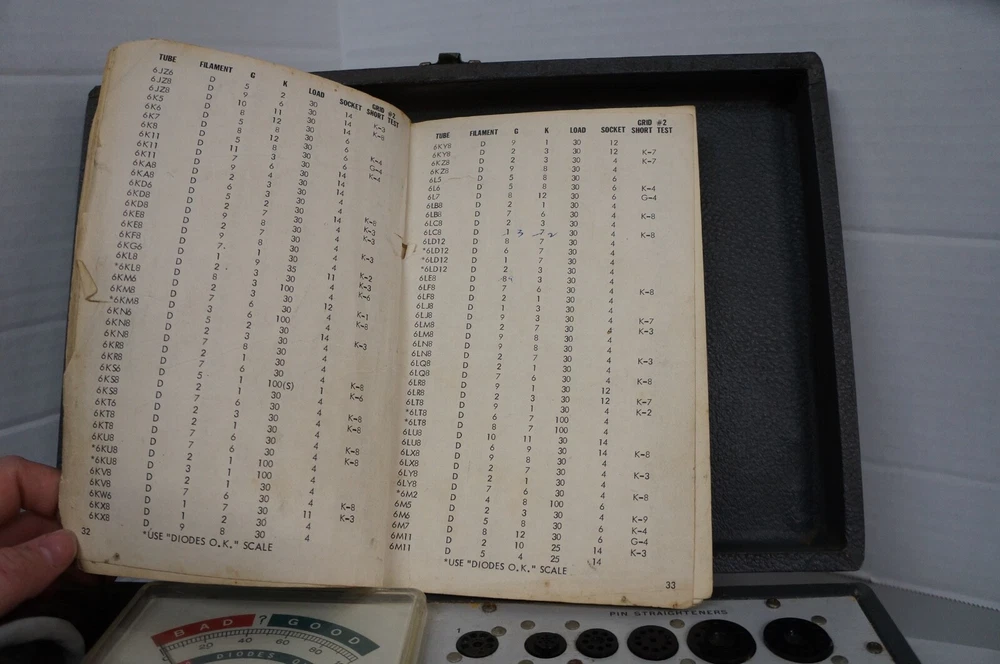 TUBE FILAMENT G K LOAD SOCKET GRID #2 SHORT TEST
6JZ6 D 5 2 30 14 K-3
6JZ8 D 9 6 30 14 K-8
6JZ8 D 10 11 30 14
6K5 D 8 12 30 6
6K6 D 5 8 30 6 K-4
6K7 D 5 12 30 6 G-4
6K8 D 11 8 30 6 K-4
6K11 D 7 3 30 14
6K11 D 9 4 30 14
6KA8 D 6 3 30 14
6KA8 D
6KD6 D 5 3 30 14 K-8
6KD8 D 2 2 30 4 K-3
6KD8 D 9 7 30 4
6KE8 D 2 2 30 4 K-3
6KE8 D 9 7 30 4
6KF8 D 7 8 30 4 K-3
6KG6 D 1 9 35 11 K-2
6KL8 D 2 3 30 4 K-3
*6KL8 D 8 3 100 4
6KM6 D 2 7 30 4 K-6
6KM8 D 7 6 30 4
*6KM8 D 3 6 100 4
6KN6 D 5 2 30 12 K-1
6KN8 D 2 3 30 4 K-8
6KN8 D 7
6KR8 D 2 1 30 4
6KR8 D 7 6 30 4
6KS6 D 5 1 100(S) 1 K-6
6KS8 D 2 1 30 4 K-8
6KS8 D 7 6 30 4
6KT6 D 2 3 30 4 K-8
6KT8 D 2 1 30 4 K-8
6KT8 D 7 6 30 4
6KU8 D 7 6 30 4 K-8
*6KU8 D 2 1 100 4
*6KU8 D 3 1 100 4
6KV8 D 2 1 30 4 K-8
6KV8 D 7 6 30 4
6KW6 D 1 7 30 11 K-8
6KX8 D 1 2 30 4 K-3
6KX8 D 9 8 30 4
32
*USE "DIODES O.K." SCALE
TUBE FILAMENT G K LOAD SOCKET GRID #2 SHORT TEST
6KY8 D 9 1 30 12
6KY8 D 2 3 30 12 K-7
6KZ8 D 2 3 30 4 K-7
6KZ8 D 9 8 30 4
6L5 D 5 8 30 6
6L6 D 5 8 30 6 K-4
6L7 D 8 12 30 6 G-4
6LB8 D 2 1 30 4
6LB8 D 7 6 30 4 K-8
6LC8 D 2 3 30 4
6LC8 D 1 3 7 2 30 4 K-8
6LD12 D 8 7 30 4
*6LD12 D 6 7 30 4
*6LD12 D 1 7 30 4
*6LD12 D 2 3 30 4
6LE8 D 8 3 30 4
6LF8 D 7 6 30 4 K-8
6LF8 D 2 1 30 4
6LJ8 D 1 3 30 4
6LJ8 D 9 3 30 4 K-7
6LM8 D 2 7 30 4 K-3
6LM8 D 9 8 30 4
6LN8 D 9 8 30 4
6LN8 D 2 7 30 4 K-3
6LQ8 D 2 1 30 4
6LQ8 D 7 6 30 4 K-8
6LR8 D 9 1 30 12
6LR8 D 2 3 30 12 K-7
6LT8 D 9 1 30 4 K-2
*6LT8 D 6 7 100 4
*6LT8 D 8 7 100 4
6LU8 D 10 11 30 14
6LU8 D 6 9 30 14 K-8
6LX8 D 9 8 30 4
6LX8 D 2 7 30 4 K-3
6LY8 D 2 1 30 4
6LY8 D 7 6 30 4 K-8
*6M2 D 4 8 100 6
6M5 D 2 3 30 4 K-9
6M6 D 5 8 30 6 K-4
6M7 D 8 12 30 6 G-4
6M11 D 2 10 25 14 K-3
6M11 D 5 4 25 14
*USE "DIODES O.K." SCALE
33
BAD ? GOOD
20 40 60 80
DIODES O
PIN STRAIGHTENERS
1